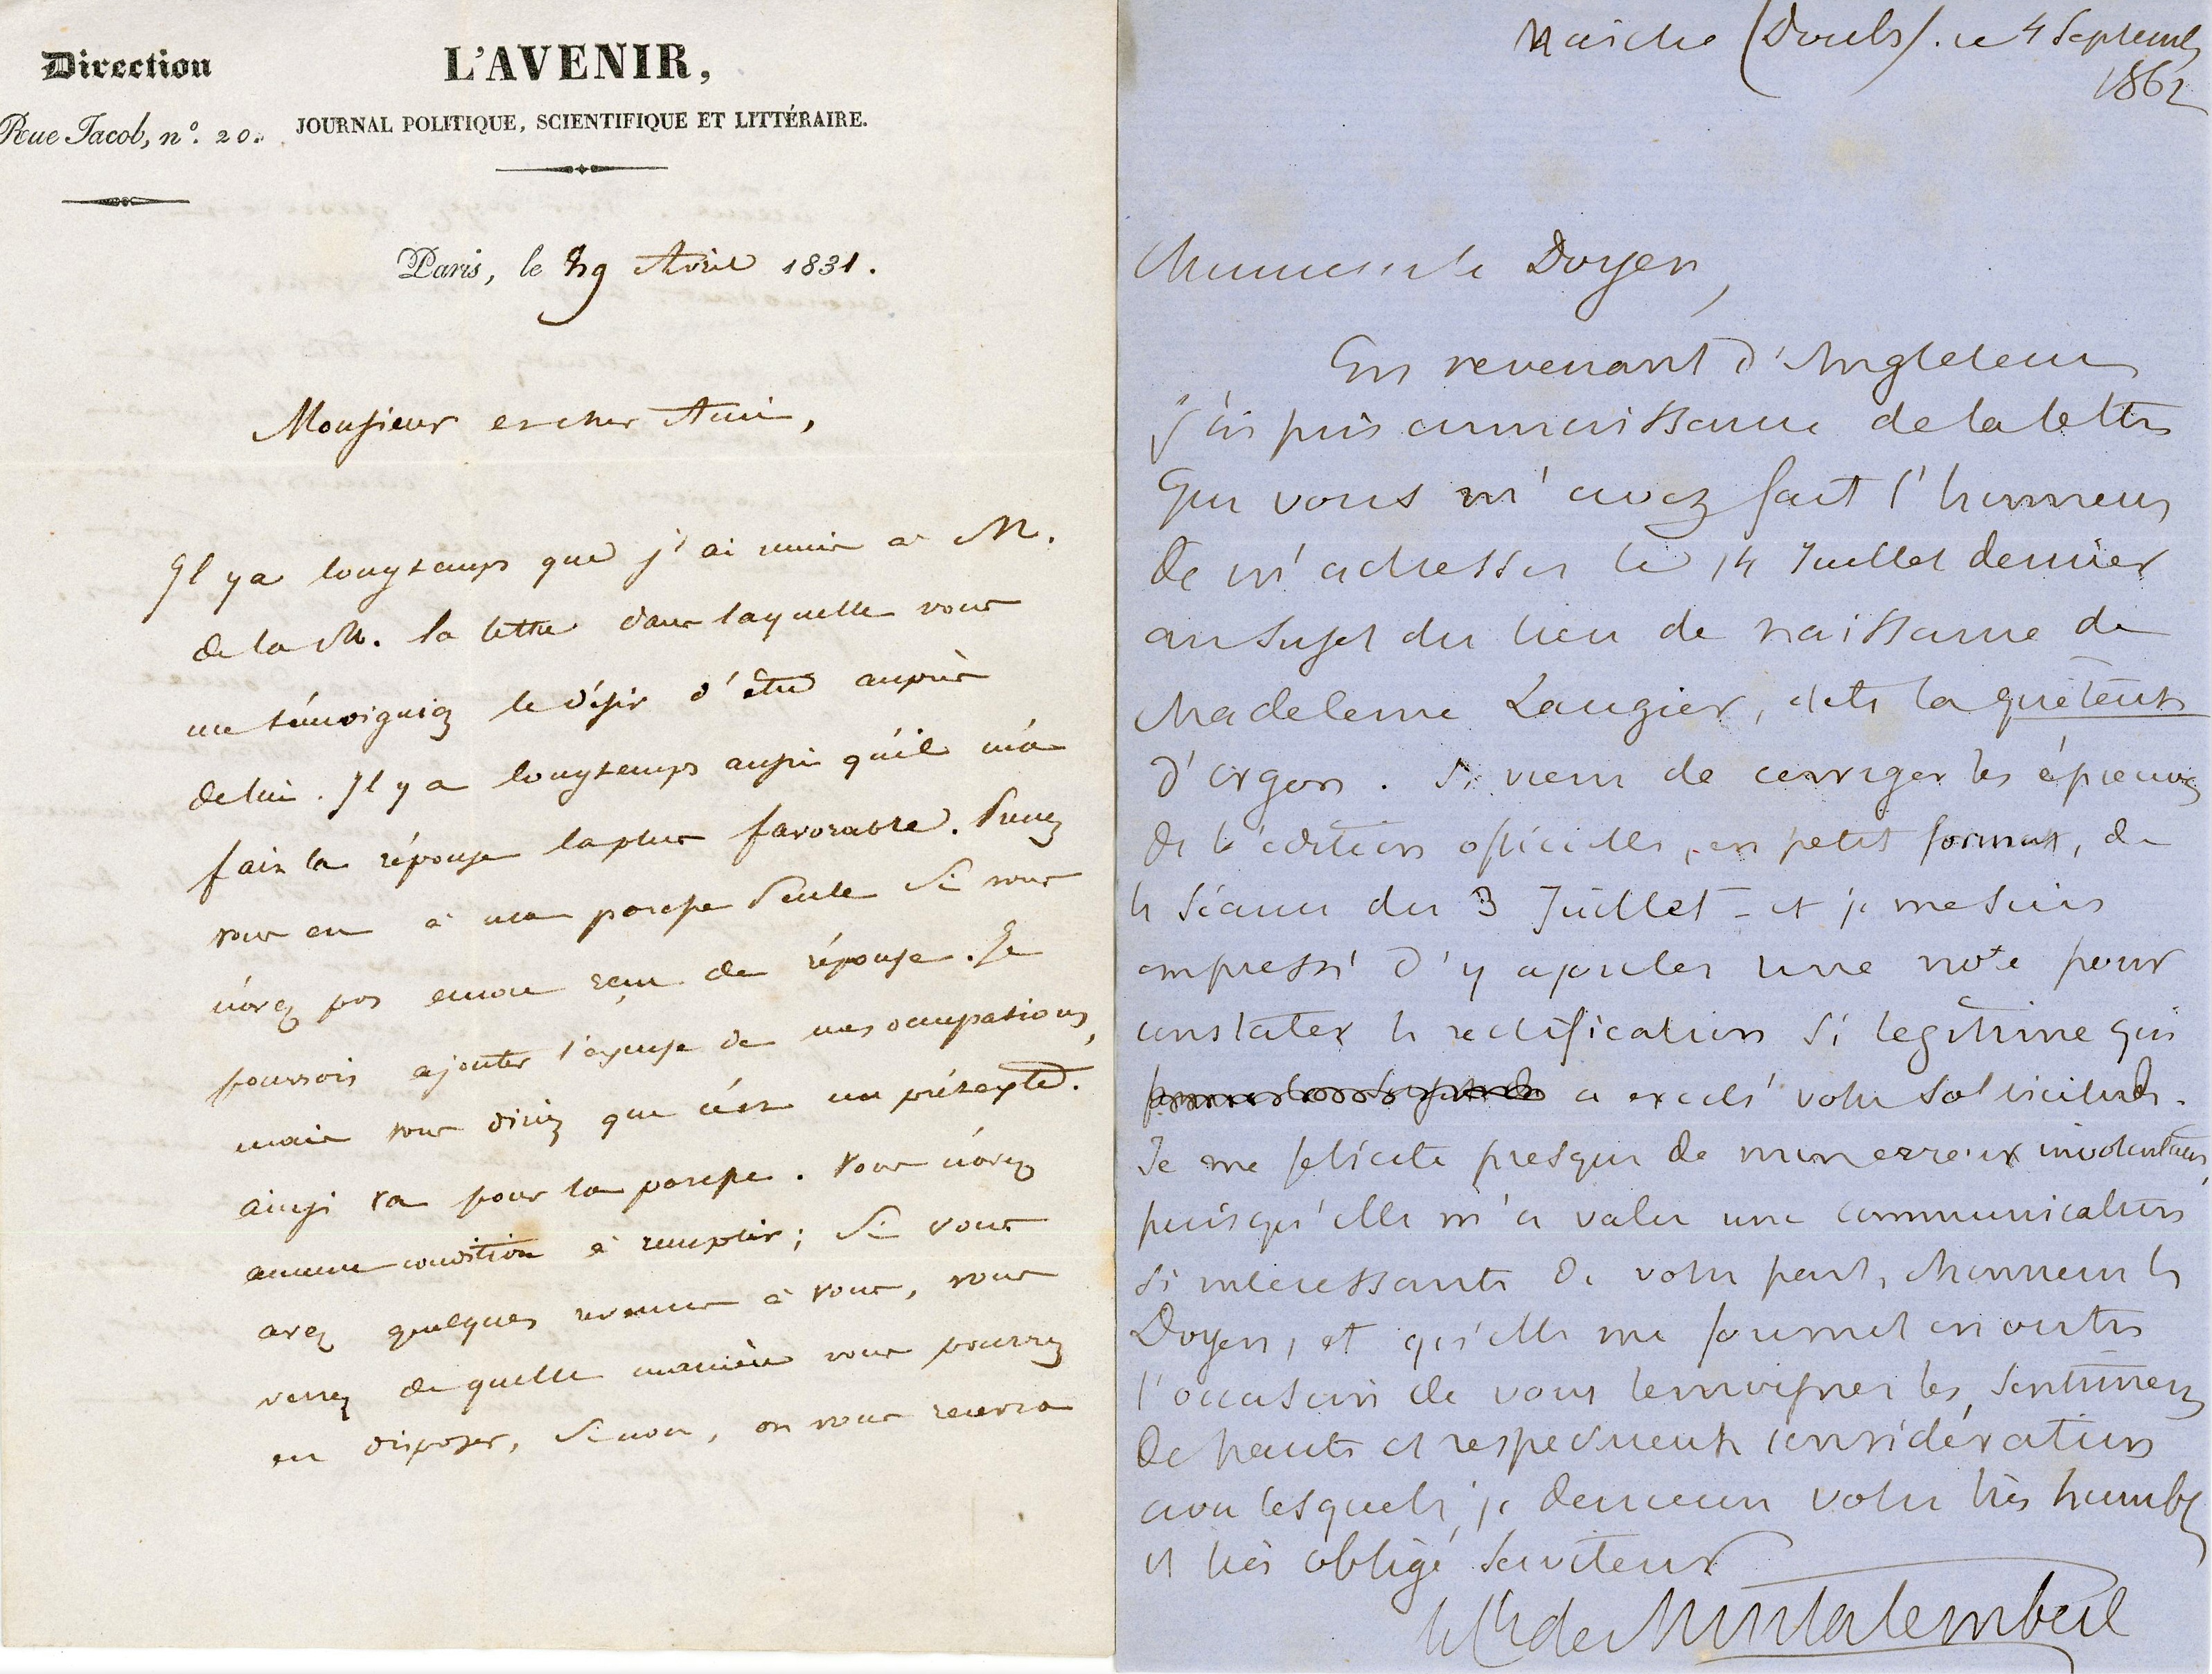 Direction
Rue Jacob, nº. 20.
L'AVENIR,
JOURNAL POLITIQUE, SCIENTIFIQUE ET LITTÉRAIRE.
Paris, le 29 Avril 1831.
Monsieur et cher Ami,
Il y a longtemps que j'ai remis à M.
de la M. la lettre dans laquelle vous
me témoigniez le désir d'être auprès
de lui. Il y a longtemps aussi qu'il m'a
fait la réponse la plus favorable. Prenez
vous en à ma paresse seule si vous
n'avez pas encore reçu de réponse. Je
pourrois ajouter l'excuse de mes occupations,
mais vous diriez que c'est un prétexte.
ainsi va pour la paresse. Vous n'avez
aucune condition à remplir; si vous
avez quelques revenus à vous, vous
verrez de quelle manière vous pourrez
en disposer, sinon, on vous recevra
Maiche (Doubs). ce 4 Septemb
1862
Monsieur le Doyen,
En revenant d'Angleterre
j'ai pris connaissance de la lettre
que vous m'avez fait l'honneur
de m'adresser le 14 Juillet dernier
au sujet du lieu de naissance de
Madeleine Laugier, dite la quêteuse
d'Orgon. Je viens de corriger les épreuves
de l'édition officielle, en petit format, de
la séance du 3 Juillet - et je me suis
empressé d'y ajouter une note pour
constater la rectification si legitime qui
a excité votre sollicitude.
Je me felicite presque de mon erreur involontaire,
puisqu'elle m'a valu une communication
si interessante de votre part, Monsieur le
Doyen, et qu'elle me fournit en outre
l'occasion de vous temoigner les sentimens
de haute et respectueuse considération
avec lesquels je demeure votre très humble
et très obligé serviteur
le Cte de Montalembert